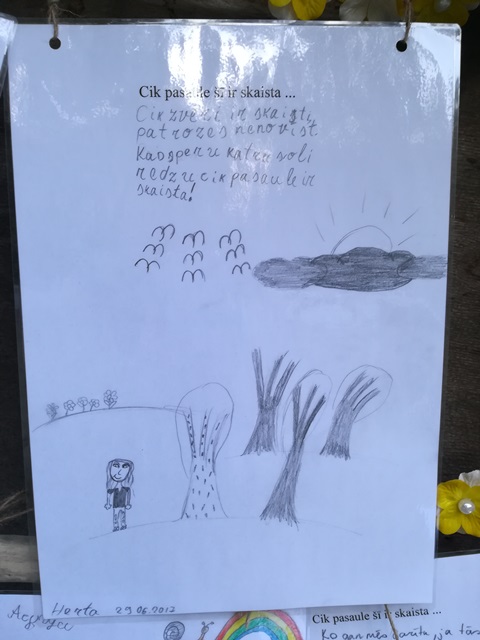 Cik pasaule šī ir skaista ...
Cik zvēri ir skaisti,
pat rozes nenovīst.
Kao speru katru soli
redzu cik pasaule ir
skaista!
Herta 29.06.2012
Cik pasaule šī ir skaista ...